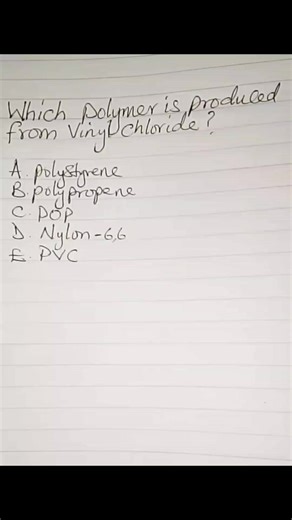 Which polymer is produced
from Vinyl Chloride?
A. polystyrene
B. polypropene
C. DOP
D. Nylon-6,6
E. PVC